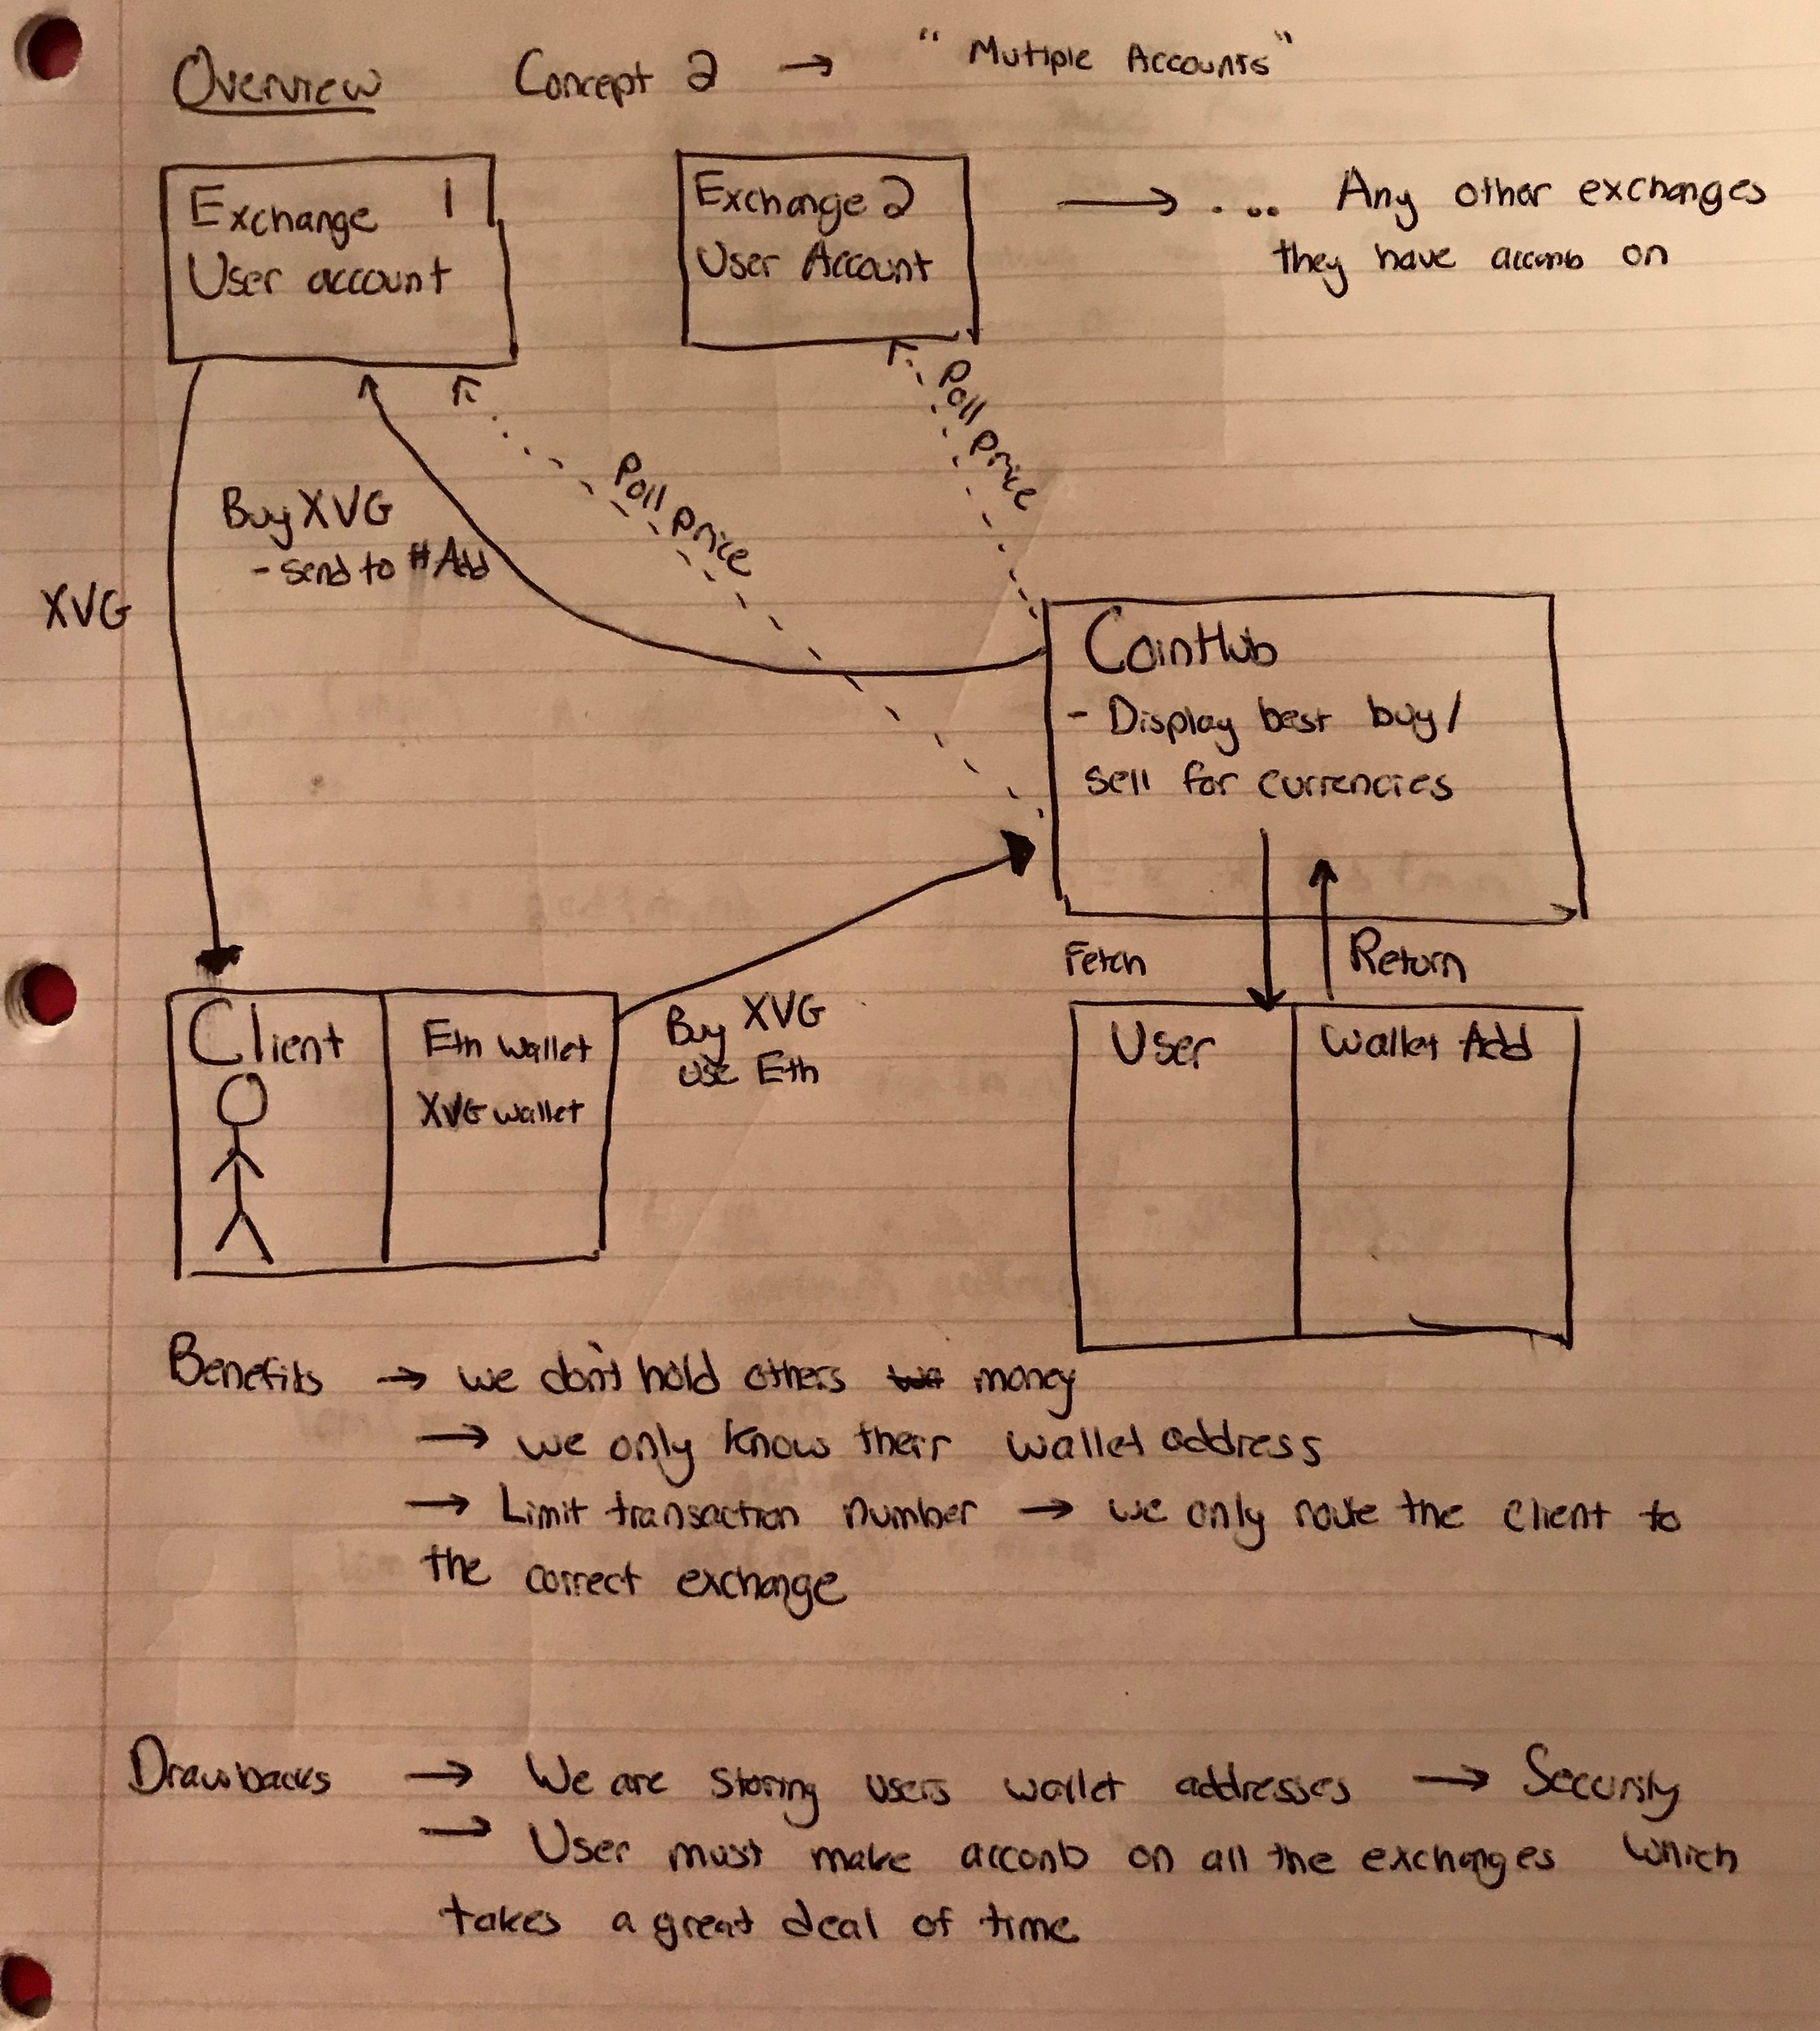 Overview Concept 2 → "Mutiple Accounts"
Exchange 1
User account
Exchange 2
User Account
→ .... Any other exchanges
they have acconb on
Poll price
Poll price
Buy XVG
- send to #Add
XVG
CoinHub
- Display best buy/
sell for currencies
Fetch
Return
Client
Eth wallet
XVG wallet
Buy XVG
use Eth
User
Wallet Add
Benefits → we don't hold others money
→ we only know their wallet address
→ Limit transaction number → we only route the client to
the correct exchange
Drawbacks → We are storing users wallet addresses →
→ User must make acconb on all the exchanges which
takes a great deal of time